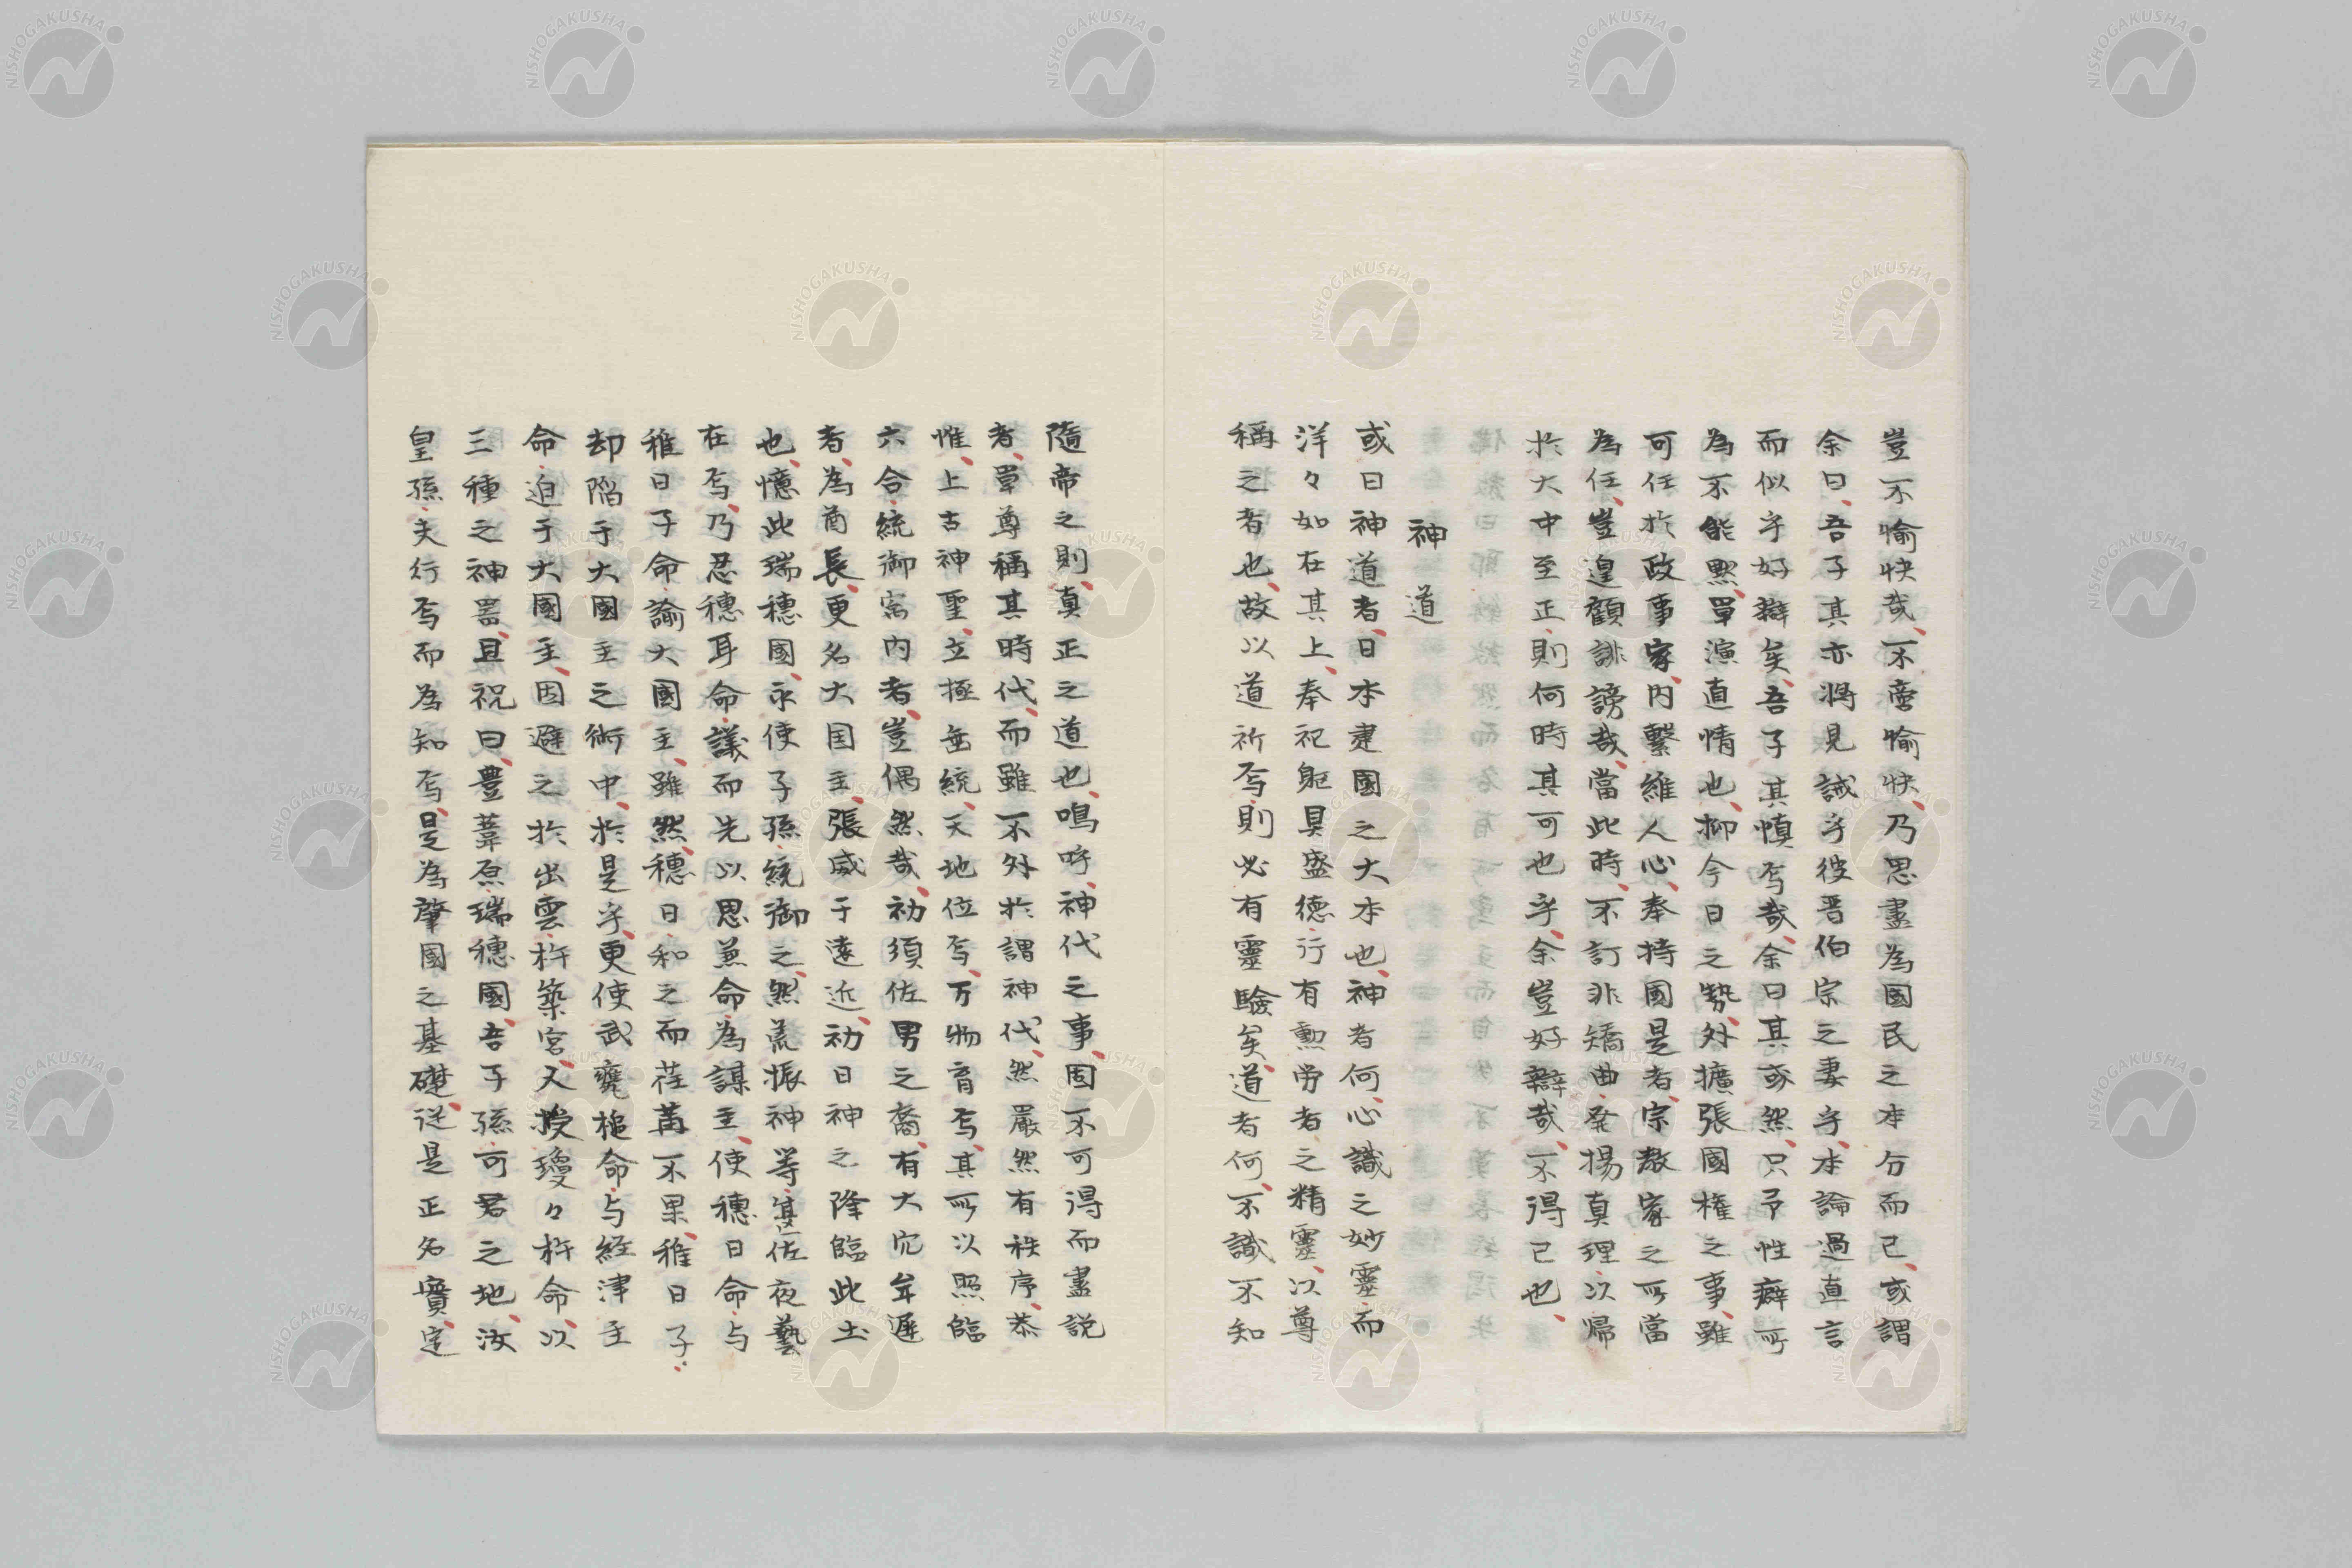 豈不愉快哉、不啻愉快、乃思盡為國民之本分而已、或謂
余曰、吾子其亦将見誡乎彼晋伯宗之妻乎、本論過直言
而似乎好辯矣、吾子其慎焉哉、余曰其或然、只予性癖所
為不能黙、單演直情也、抑今日之勢、外擴張國権之事、雖
可任於政事家、内繋維人心、奉持國是者、宗教家之所當
為任、豈遑顧誹謗哉、當此時、不訂非矯曲、発揚真理、以帰
於大中至正、則何時其可也乎、余豈好辯哉、不得已也、
神道
或曰神道者、日本建國之大本也、神者何、心識之妙靈、而
洋々如在其上、奉祀躯具盛徳、行有勲労者之精靈、以尊
稱之者也、故以道祈焉、則必有靈驗矣、道者何、不識不知
隨帝之則、真正之道也、嗚呼、神代之事、固不可得而盡説
者、單尊稱其時代、而雖不外於謂神代、然嚴然有秩序、恭
惟、上古神聖、立極垂統、天地位焉、万物育焉、其所以照臨
六合、統御宇内者、豈偶然哉、初須佐男之裔、有大穴牟遲
者、為酋長、更名大国主、張威于遠近、初日神之降臨此土
也、憶此瑞穂國、永使子孫統御之、然荒振神等、甚佐夜藝
在焉、乃忍穂耳命、議而先以思兼命為謀主、使穂日命与
稚日子命、諭大國主、雖然、穂日和之而荏苒不果、稚日子
却陥于大國主之術中、於是乎、更使武甕槌命与経津主
命、迫于大國主、因避之於出雲杵築宮、又授瓊々杵命、以
三種之神器、且祝曰、豊葦原瑞穂國、吾子孫可君之地、汝
皇孫、夫行焉而為知焉、是為肇國之基礎、従是正名實、定